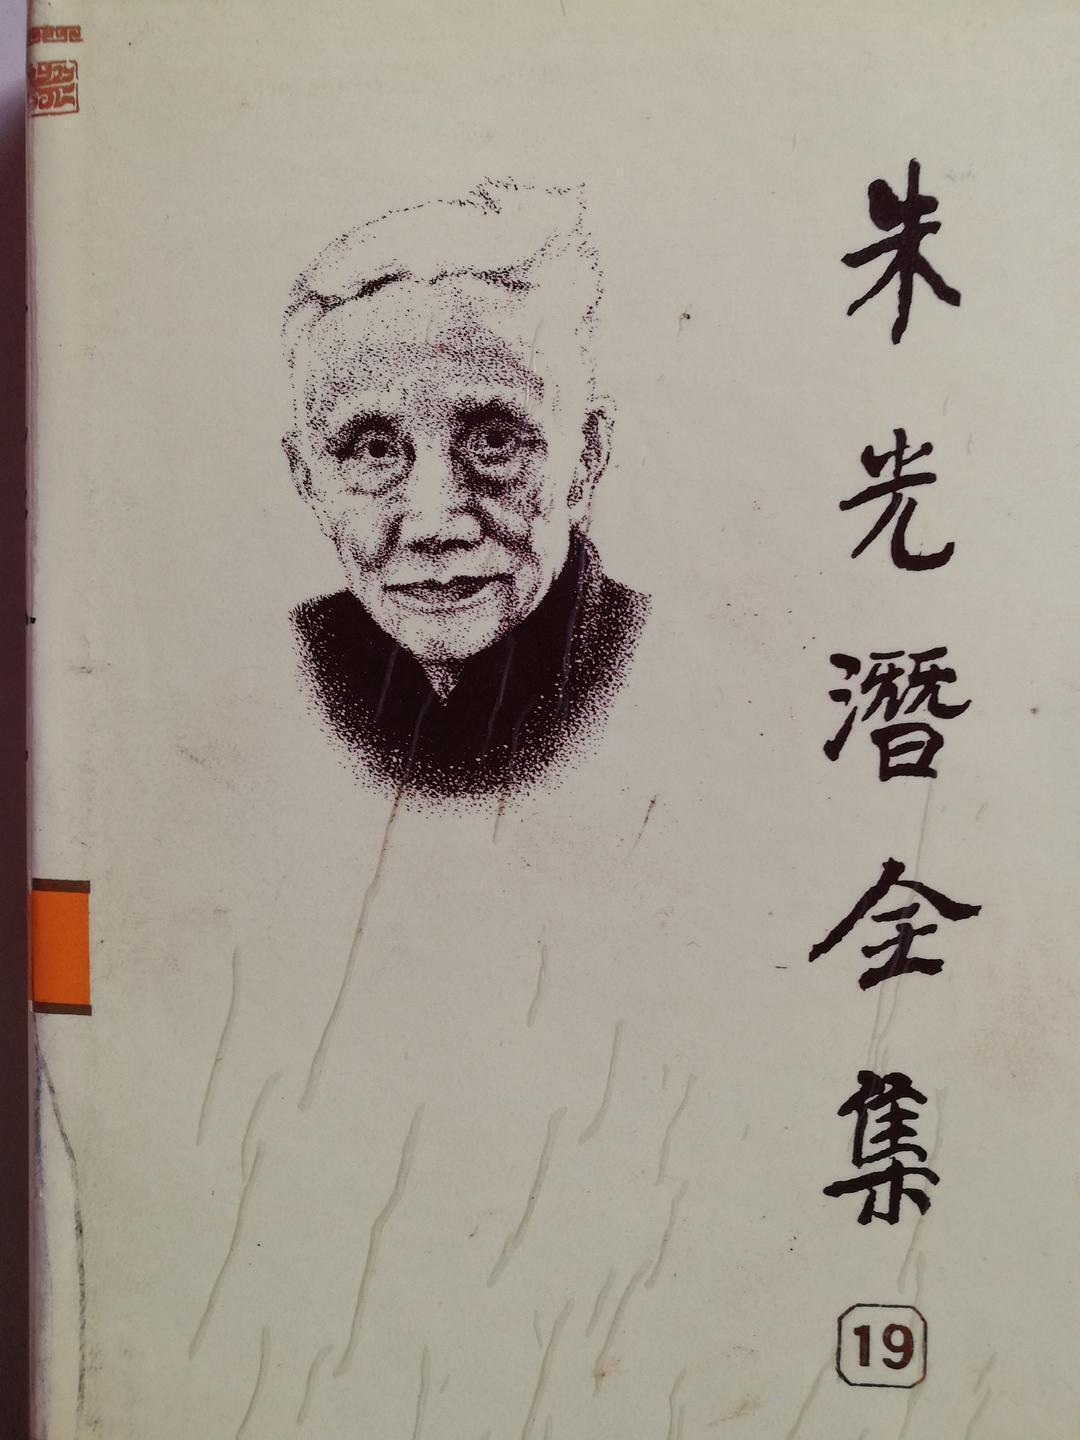 朱光潛全集
19